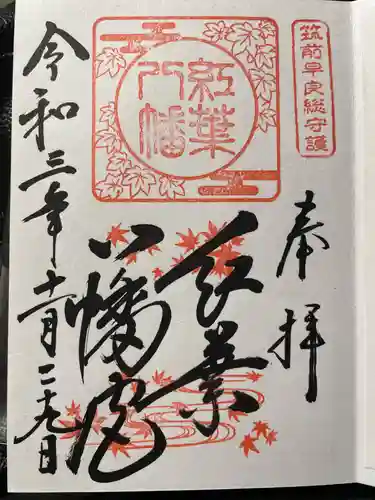 筑前早良総守護
奉拝
紅葉
八幡宮
紅葉
八幡
令和三年十一月二十九日